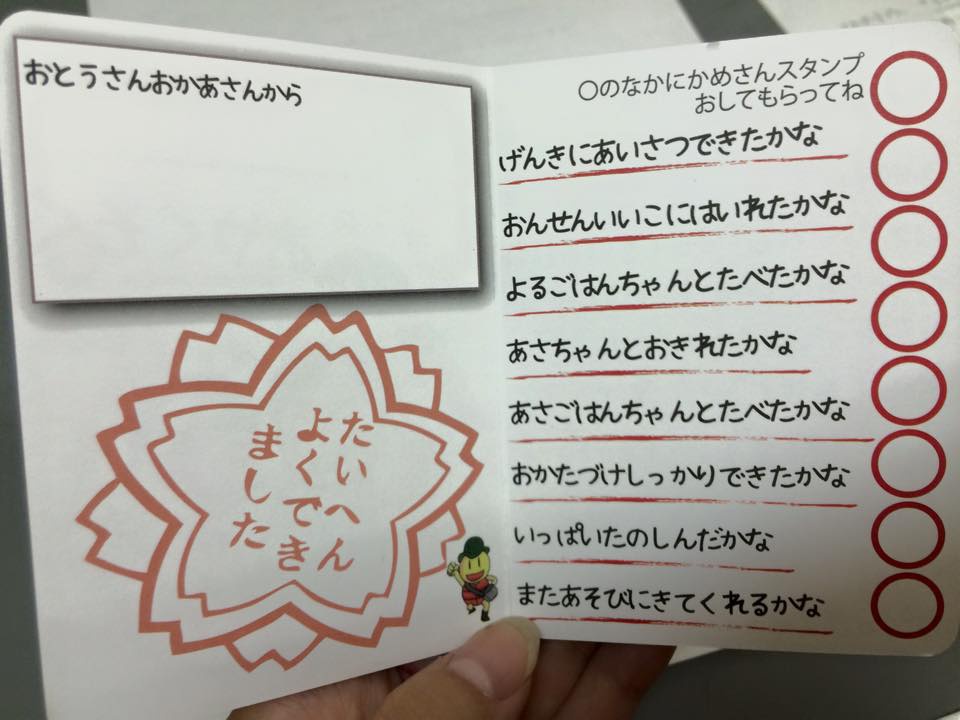 おとうさんおかあさんから
たいへん
よくでき
ました
〇のなかにかめさんスタンプ
おしてもらってね
げんきにあいさつできたかな
おんせんいいこにはいれたかな
よるごはんちゃんとたべたかな
あさちゃんとおきれたかな
あさごはんちゃんとたべたかな
おかたづけしっかりできたかな
いっぱいたのしんだかな
またあそびにきてくれるかな